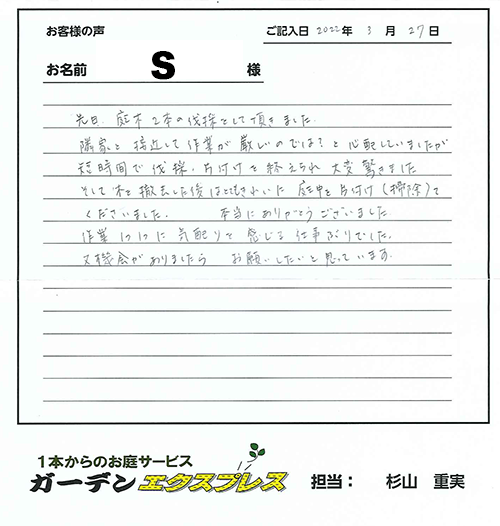 お客様の声
ご記入日 2022年 3月 27日
お名前 S 様
先日、庭木2本の伐採をして頂きました。
隣家と接近して作業が厳しいのでは?と心配していましたが
短時間で伐採、片付けを終えられ大変驚きました
そして木を撤去した後はとてもきれいに庭中を片付け(掃除)て
くださいました。 本当にありがとうございました
作業1つ1つに気配りを感じる仕事ぶりでした。
又機会がありましたら お願いしたいと思っています。
1本からのお庭サービス
ガーデンエクスプレス 担当: 杉山 重実